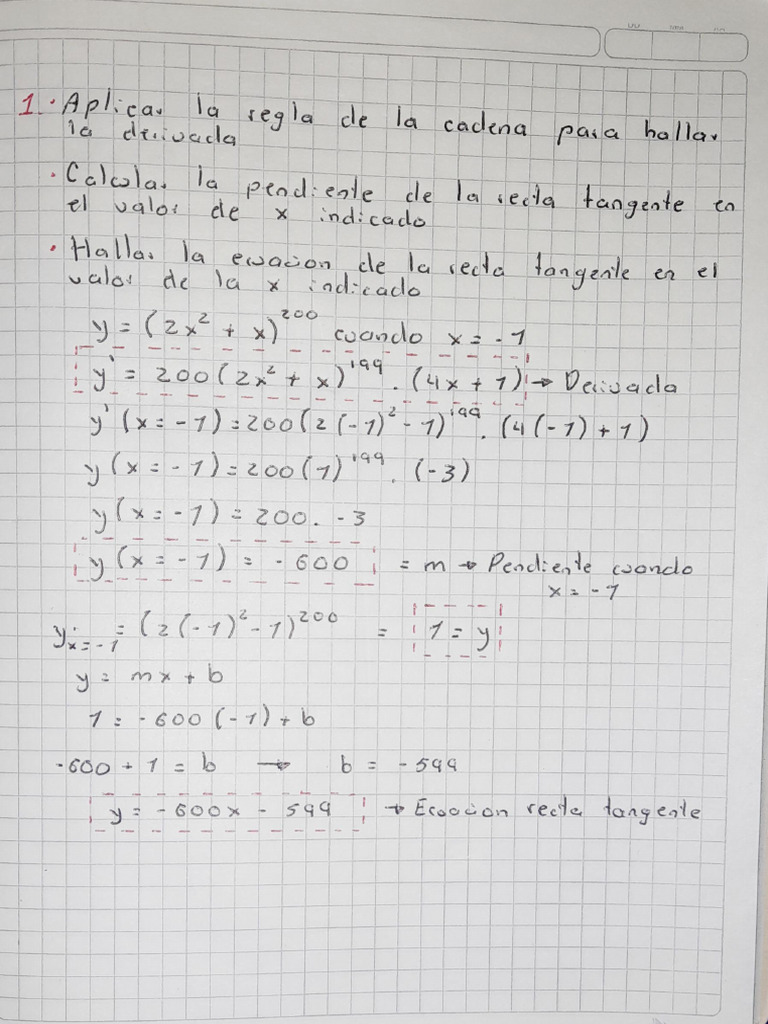 1. Aplicar la regla de la cadena para hallar
la derivada
· Calcular la pendiente de la recta tangente en
el valor de x indicado
· Hallar la ecuacion de la recta tangente en el
valor de la x indicado
y = (2x² + x)²⁰⁰ cuando x = -1
y' = 200(2x² + x)¹⁹⁹ · (4x + 1) → Derivada
y'(x = -1) = 200(2(-1)² - 1)¹⁹⁹ · (4(-1) + 1)
y(x = -1) = 200(1)¹⁹⁹ · (-3)
y(x = -1) = 200 · -3
y(x = -1) = -600 = m → Pendiente cuando
x = -1
y x = -1 = (2(-1)² - 1)²⁰⁰ = 1 = y
y = mx + b
1 = -600(-1) + b
-600 + 1 = b → b = -599
y = -600x - 599 → Ecuacion recta tangente